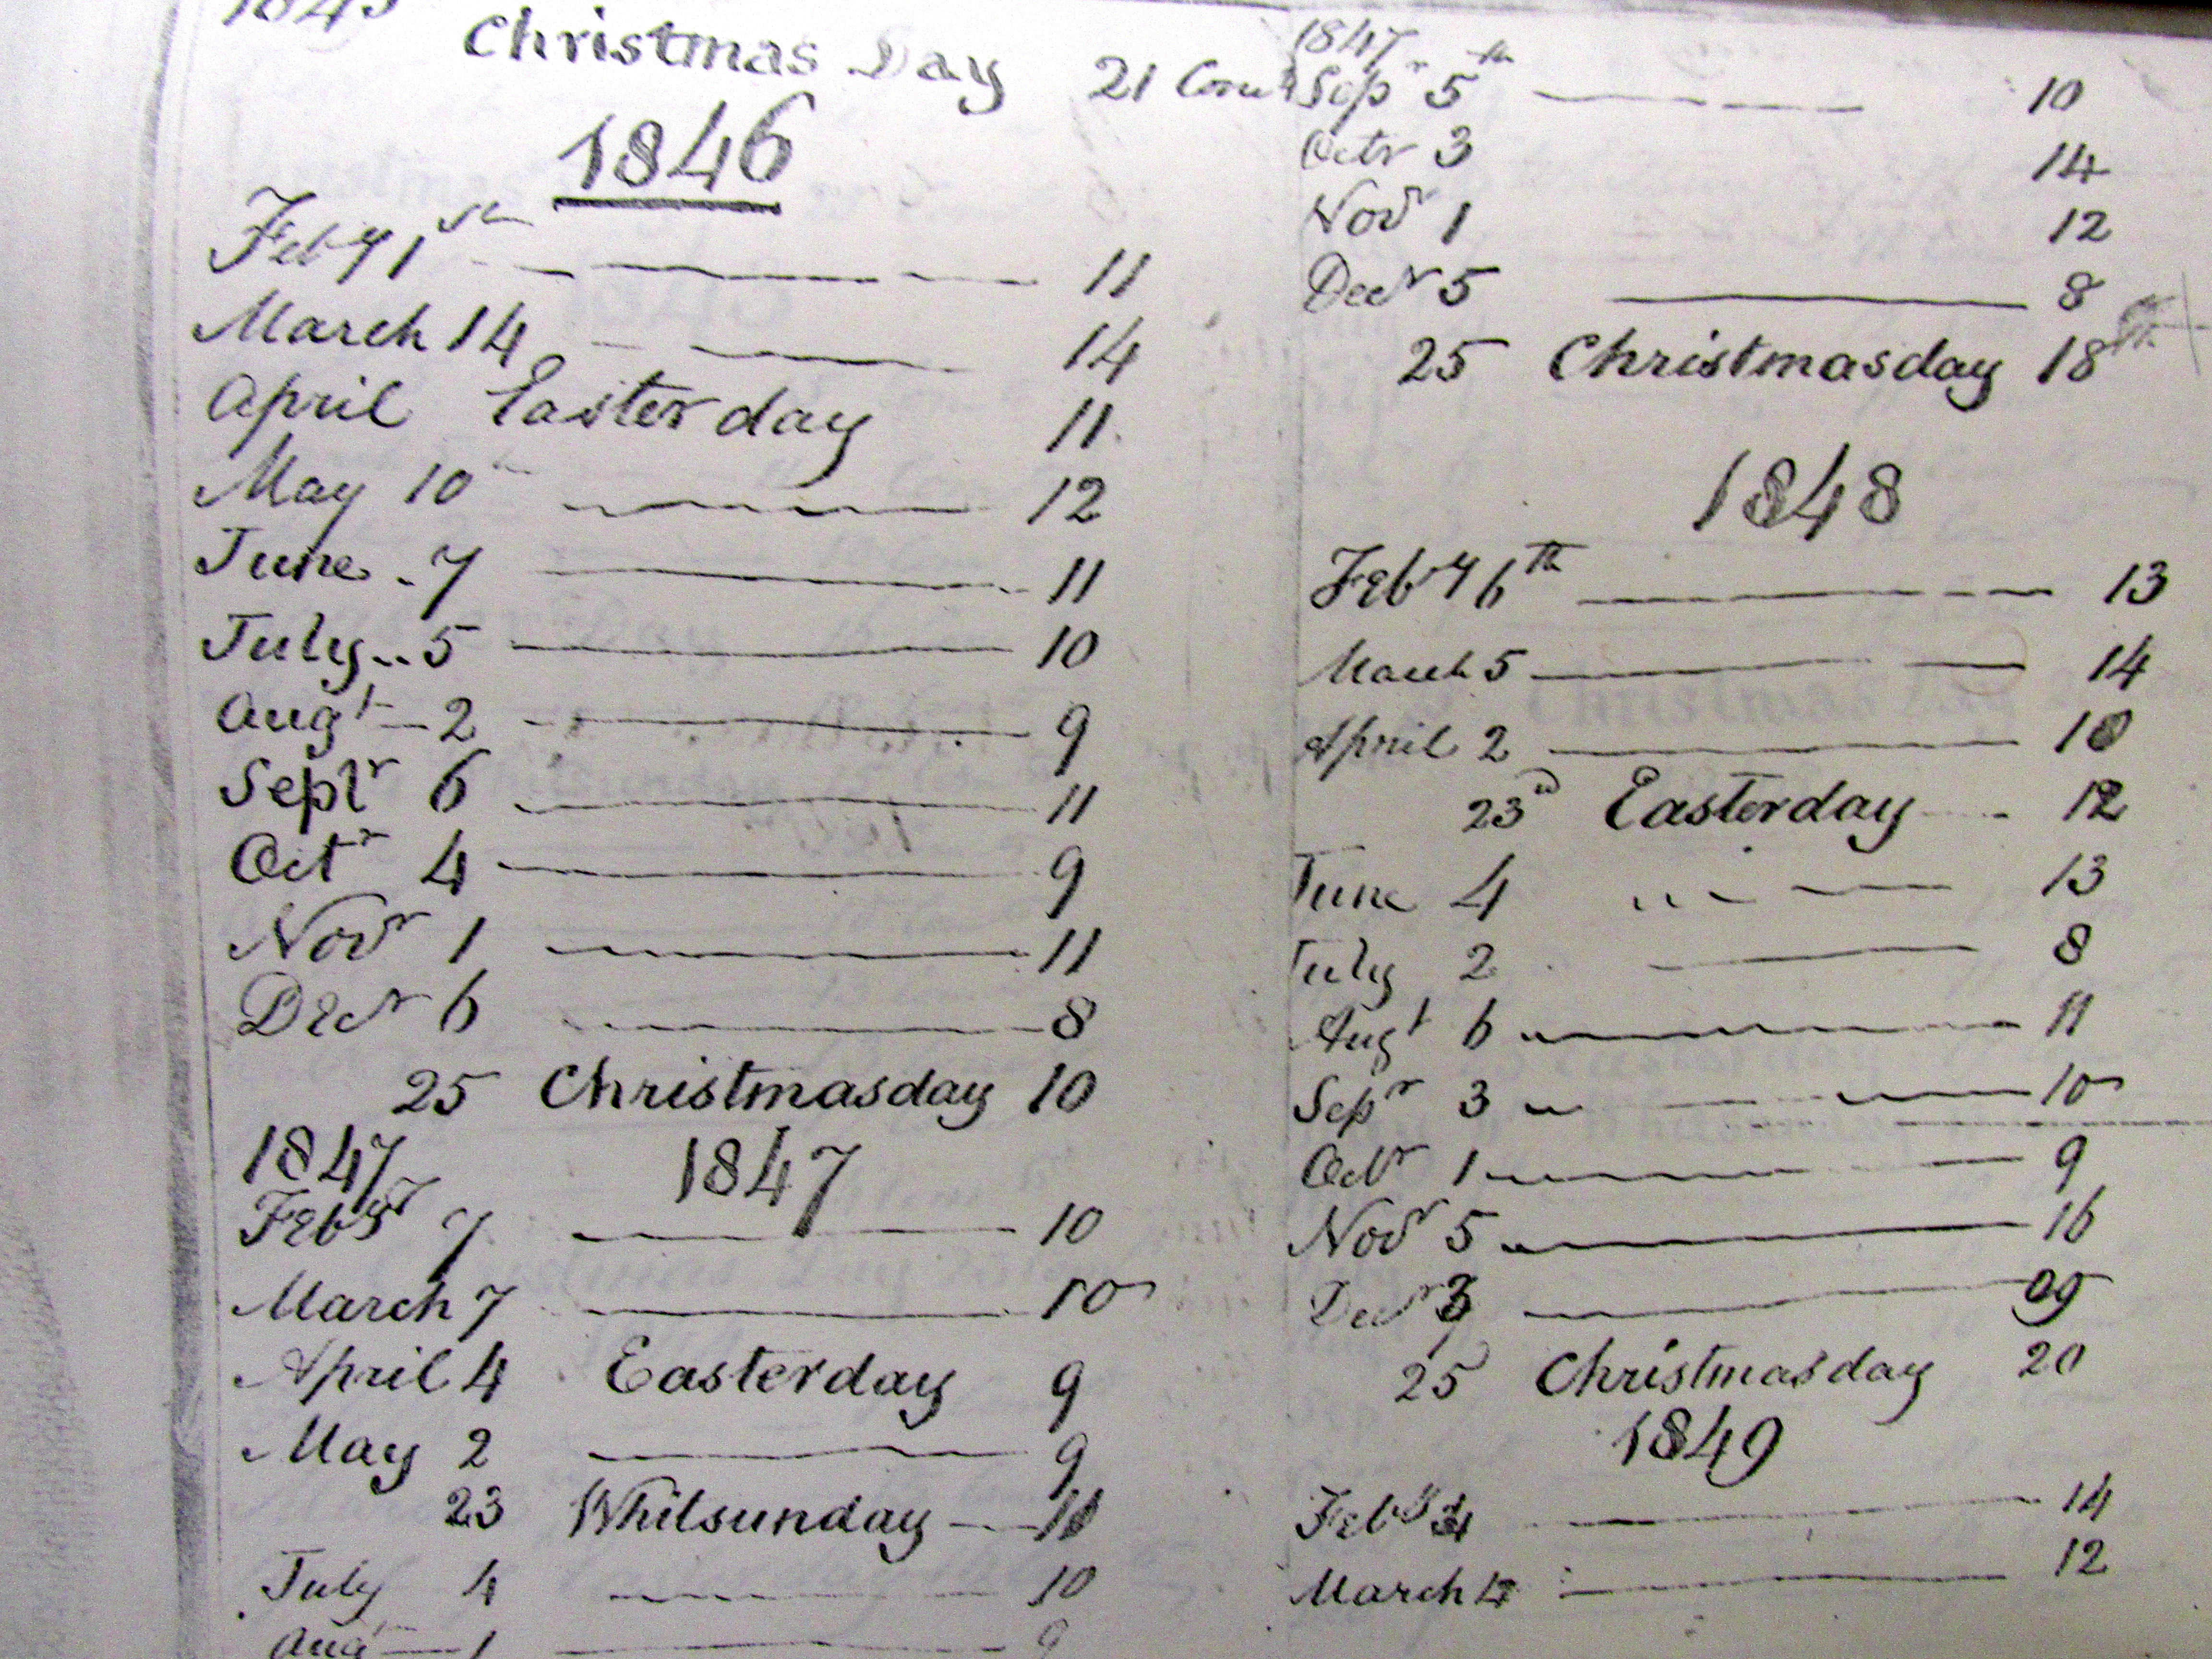 1845
Christmas Day 21 Comts
1846
Feby 1st 11
March 14 14
April Easter day 11
May 10 12
June 7 11
July 5 10
Augt 2 9
Septr 6 11
Octr 4 9
Novr 1 11
Decr 6 8
25 Christmasday 10
1847 1847
Feby 7 10
March 7 10
April 4 Easterday 9
May 2 9
23 Whitsunday 11
July 4 10
Aug 1 9
1847
Sepr 5th 10
Octr 3 14
Novr 1 12
Decr 5 8
25 Christmasday 18
1848
Feby 6th 13
March 5 14
April 2 10
23d Easterday 12
June 4 13
July 2 8
Augt 6 11
Sepr 3 10
Octr 1 9
Novr 5 16
Decr 3 9
25 Christmasday 20
1849
Feby 4 14
March 4 12